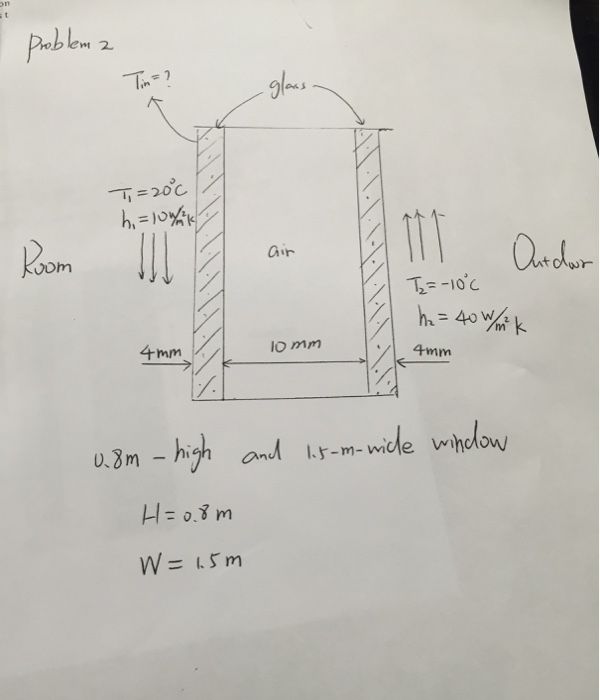 Problem 2
Tin = ?
glass
T₁ = 20°C
h₁ = 10 W/m²k
air
Room
Outdoor
T₂ = -10°C
h₂ = 40 W/m²k
4mm
10 mm
4mm
0.8m - high and 1.5-m-wide window
H = 0.8 m
W = 1.5 m